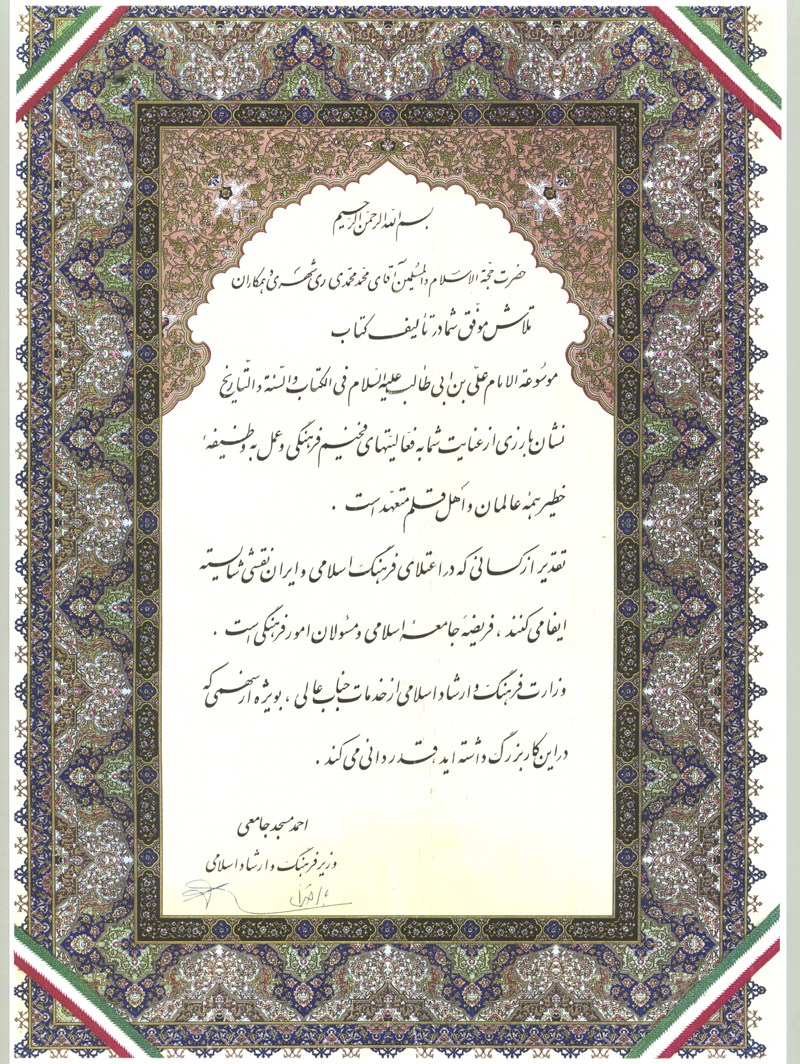 بسم الله الرحمن الرحیم
حضرت حجة الاسلام والمسلمین آقای محمد محمدی ری شهری و همکاران
تلاش موفّق شما در تألیف کتاب
موسوعة الامام علی بن ابی طالب علیه السلام فی الکتاب والسنة والتاریخ
نشان بارزی از عنایت شما به فعّالیتهای فخیم فرهنگی و عمل به وظیفهٔ
خطیر همه عالمان و اهل قلم متعهّد است .
تقدیر از کسانی که در اعتلای فرهنگ اسلامی و ایران نقشی شایسته
ایفا می کنند ، فریضه جامعهٔ اسلامی و مسئولان امور فرهنگی است .
وزارت فرهنگ و ارشاد اسلامی از خدمات جناب عالی ، بویژه از سهمی که
در این کار بزرگ داشته اید، قدردانی می کند .
احمد مسجد جامعی
وزیر فرهنگ و ارشاد اسلامی